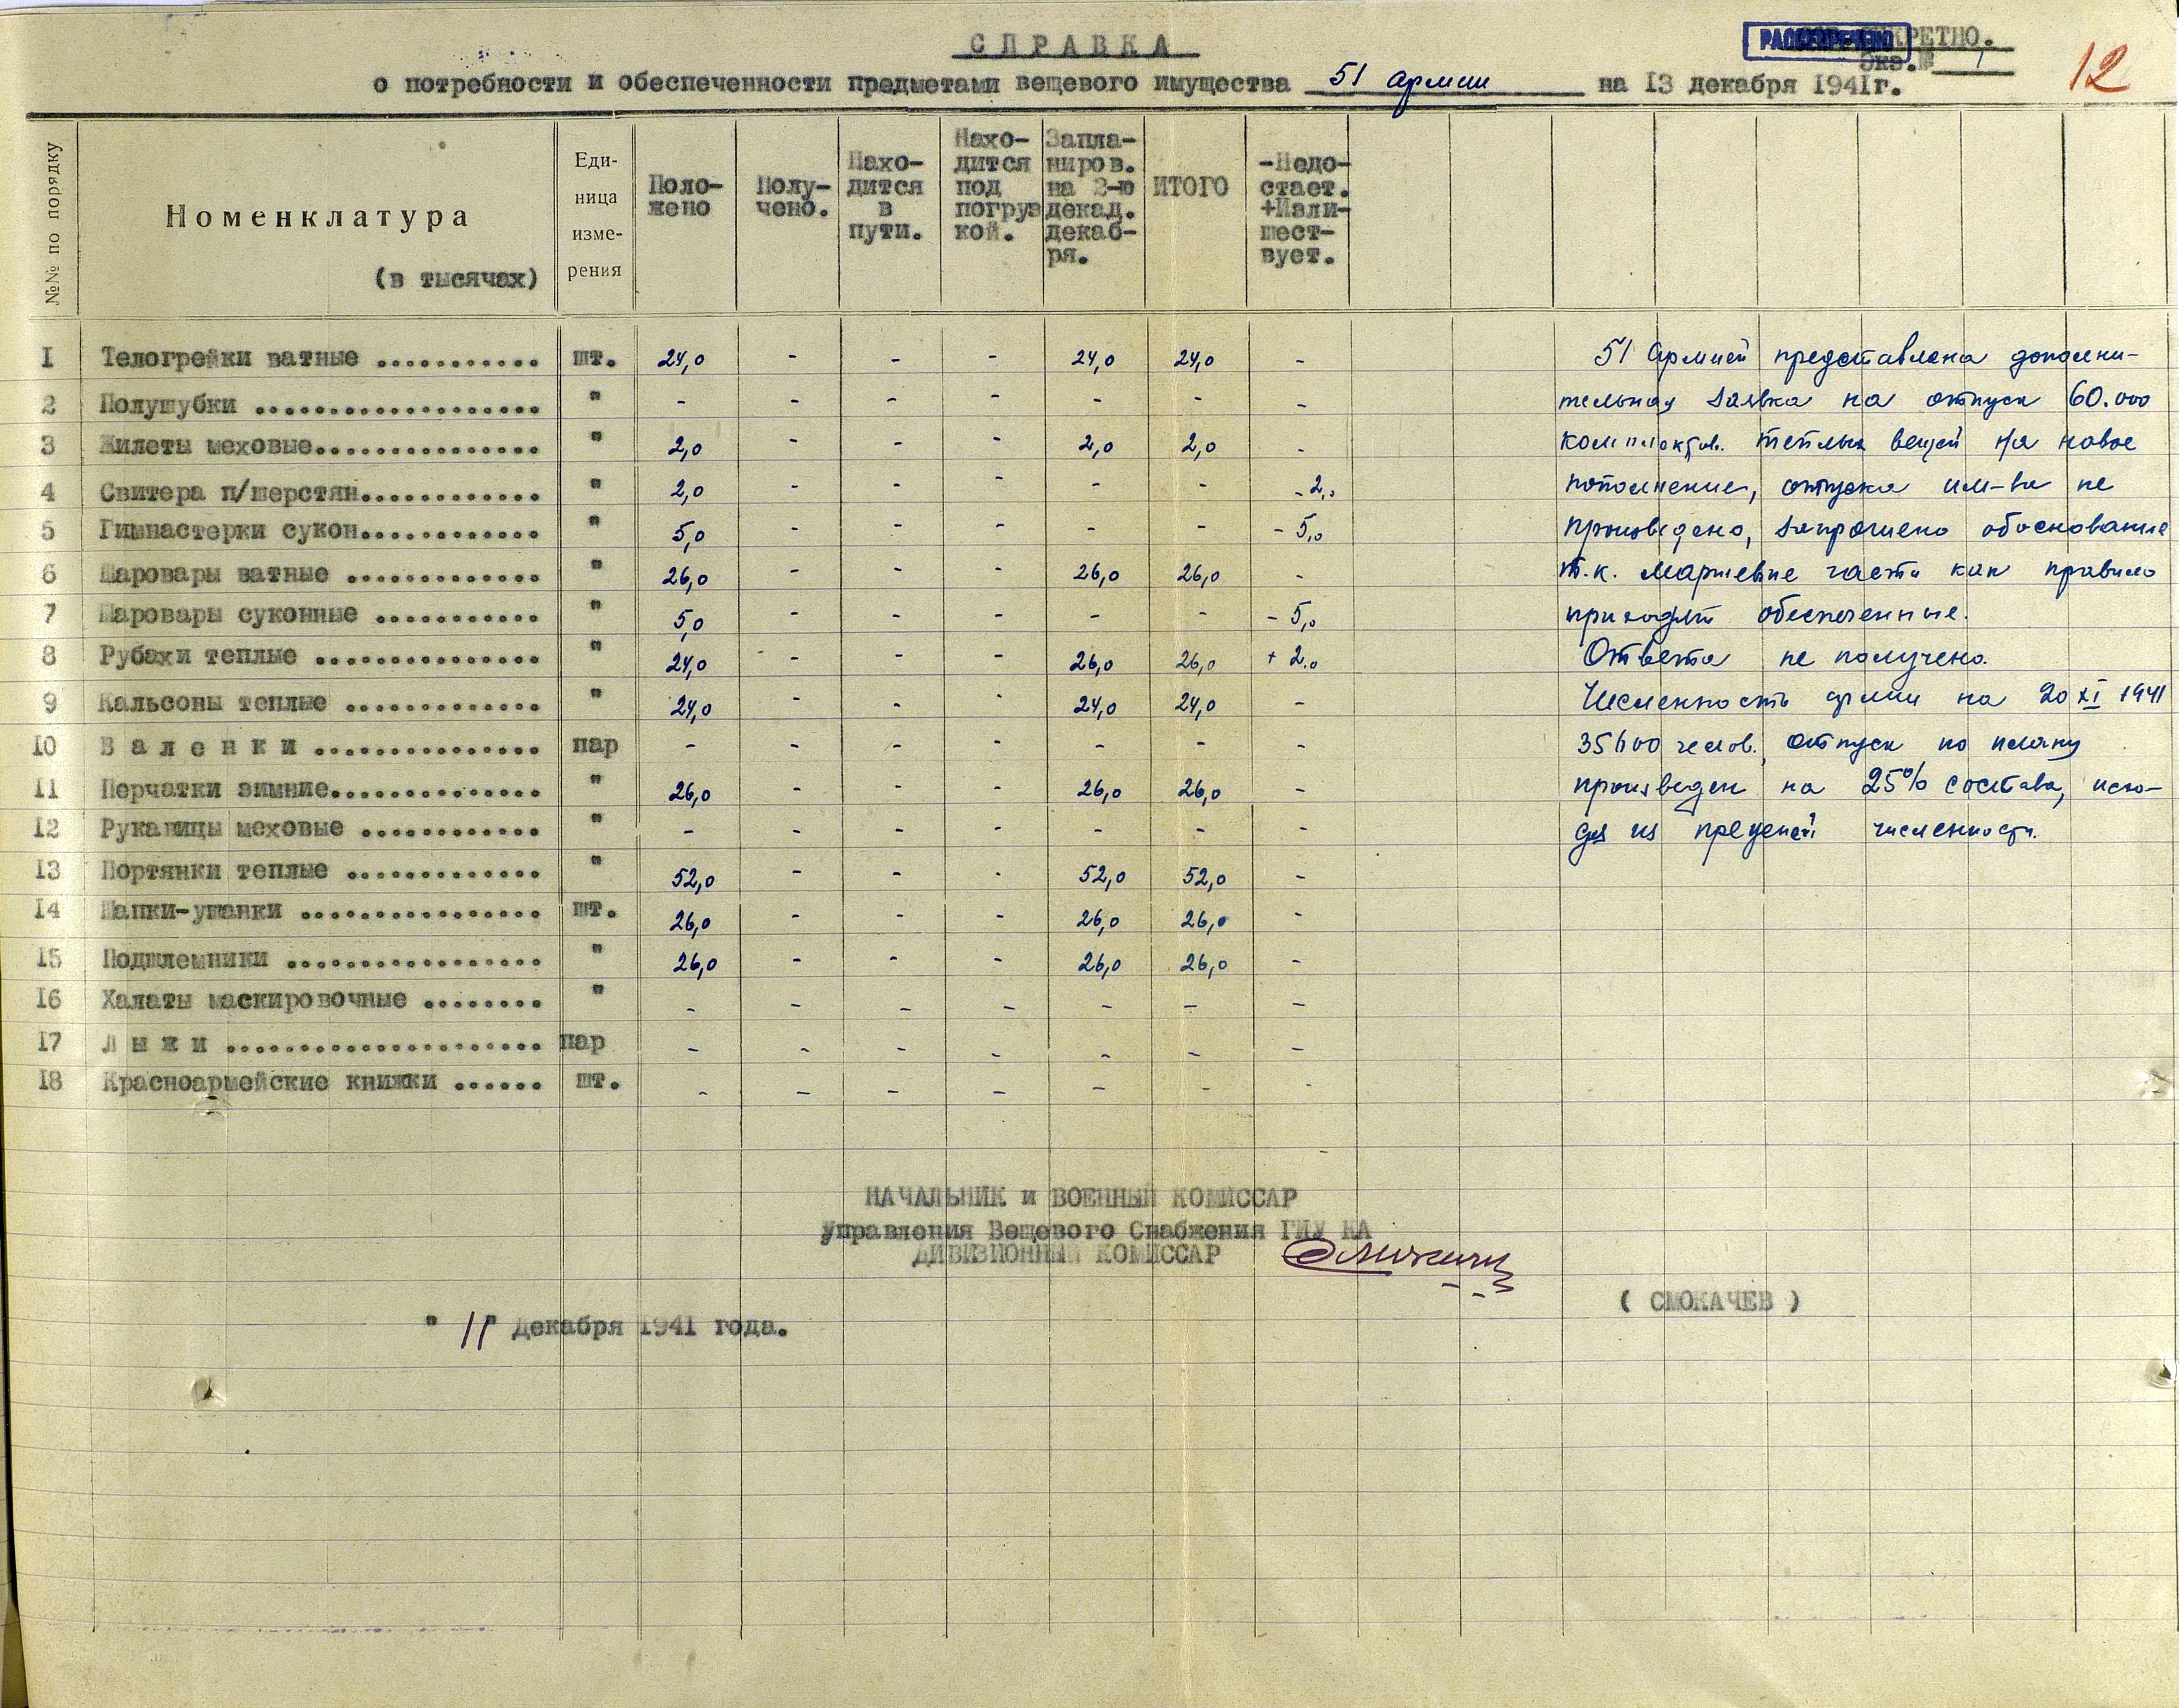 СПРАВКА
РАССЕКРЕЧЕНО
СЕКРЕТНО.
Экз.№ 1
12
о потребности и обеспеченности предметами вещевого имущества 51 армии на 13 декабря 1941г.
№№ по порядку
Номенклатура
(в тысячах)
Еди-
ница
изме-
рения
Поло-
жено
Полу-
чено.
Нахо-
дится
в
пути.
Нахо-
дится
под
погруз
кой.
Запла-
ниров.
на 2-ю
декад.
декаб-
ря.
ИТОГО
-Недо-
стает.
+Изли-
шест-
вует.
1 Телогрейки ватные ........... шт. 24,0 - - - 24,0 24,0 -
2 Полушубки ................... " - - - - - - -
3 Жилеты меховые............... " 2,0 - - - 2,0 2,0 -
4 Свитера п/шерстян............ " 2,0 - - - - - -2,0
5 Гимнастерки сукон............ " 5,0 - - - - - -5,0
6 Шаровары ватные ............. " 26,0 - - - 26,0 26,0 -
7 Шаровары суконные ........... " 5,0 - - - - - -5,0
8 Рубахи теплые ............... " 24,0 - - - 26,0 26,0 +2,0
9 Кальсоны теплые ............. " 24,0 - - - 24,0 24,0 -
10 Валенки ............... пар - - - - - - -
11 Перчатки зимние.............. " 26,0 - - - 26,0 26,0 -
12 Рукавицы меховые ............ " - - - - - - -
13 Портянки теплые ............. " 52,0 - - - 52,0 52,0 -
14 Шапки-ушанки ................ шт. 26,0 - - - 26,0 26,0 -
15 Подшлемники ................. " 26,0 - - - 26,0 26,0 -
16 Халаты маскировочные ........ " - - - - - - -
17 Лыжи ..................... пар - - - - - - -
18 Красноармейские книжки ...... шт. - - - - - - -
51 Армией представлена дополни-
тельная заявка на отпуск 60.000
комплектов. теплых вещей на новое
пополнение, отпуска им-ва не
произведено, запрошено обоснование
т.к. маршевые части как правило
приходят обеспеченные.
Ответа не получено.
Численность армии на 20 XI 1941
35600 челов. отпуск по плану
произведен на 25% состава, исхо-
дя из прежней численности.
НАЧАЛЬНИК и ВОЕННЫЙ КОМИССАР
Управления Вещевого Снабжения ГИУ КА
ДИВИЗИОННЫЙ КОМИССАР
( СМОКАЧЕВ )
" 11 " Декабря 1941 года.